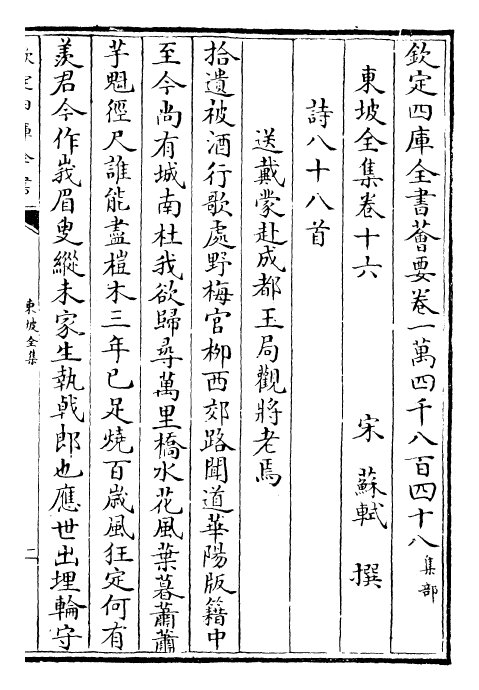 欽定四庫全書薈要卷一萬四千八百四十八 集部
東坡全集卷十六 宋 蘇軾 撰
詩八十八首
送戴蒙赴成都玉局觀將老焉
拾遺被酒行歌處野梅官柳西郊路聞道華陽版籍中
至今尚有城南杜我欲歸尋萬里橋水花風葉暮蕭蕭
芋魁徑尺誰能盡榿木三年已足燒百歲風狂定何有
羨君今作峩眉叟縱未家生執戟郎也應世出埋輪守
欽定四庫全書
東坡全集